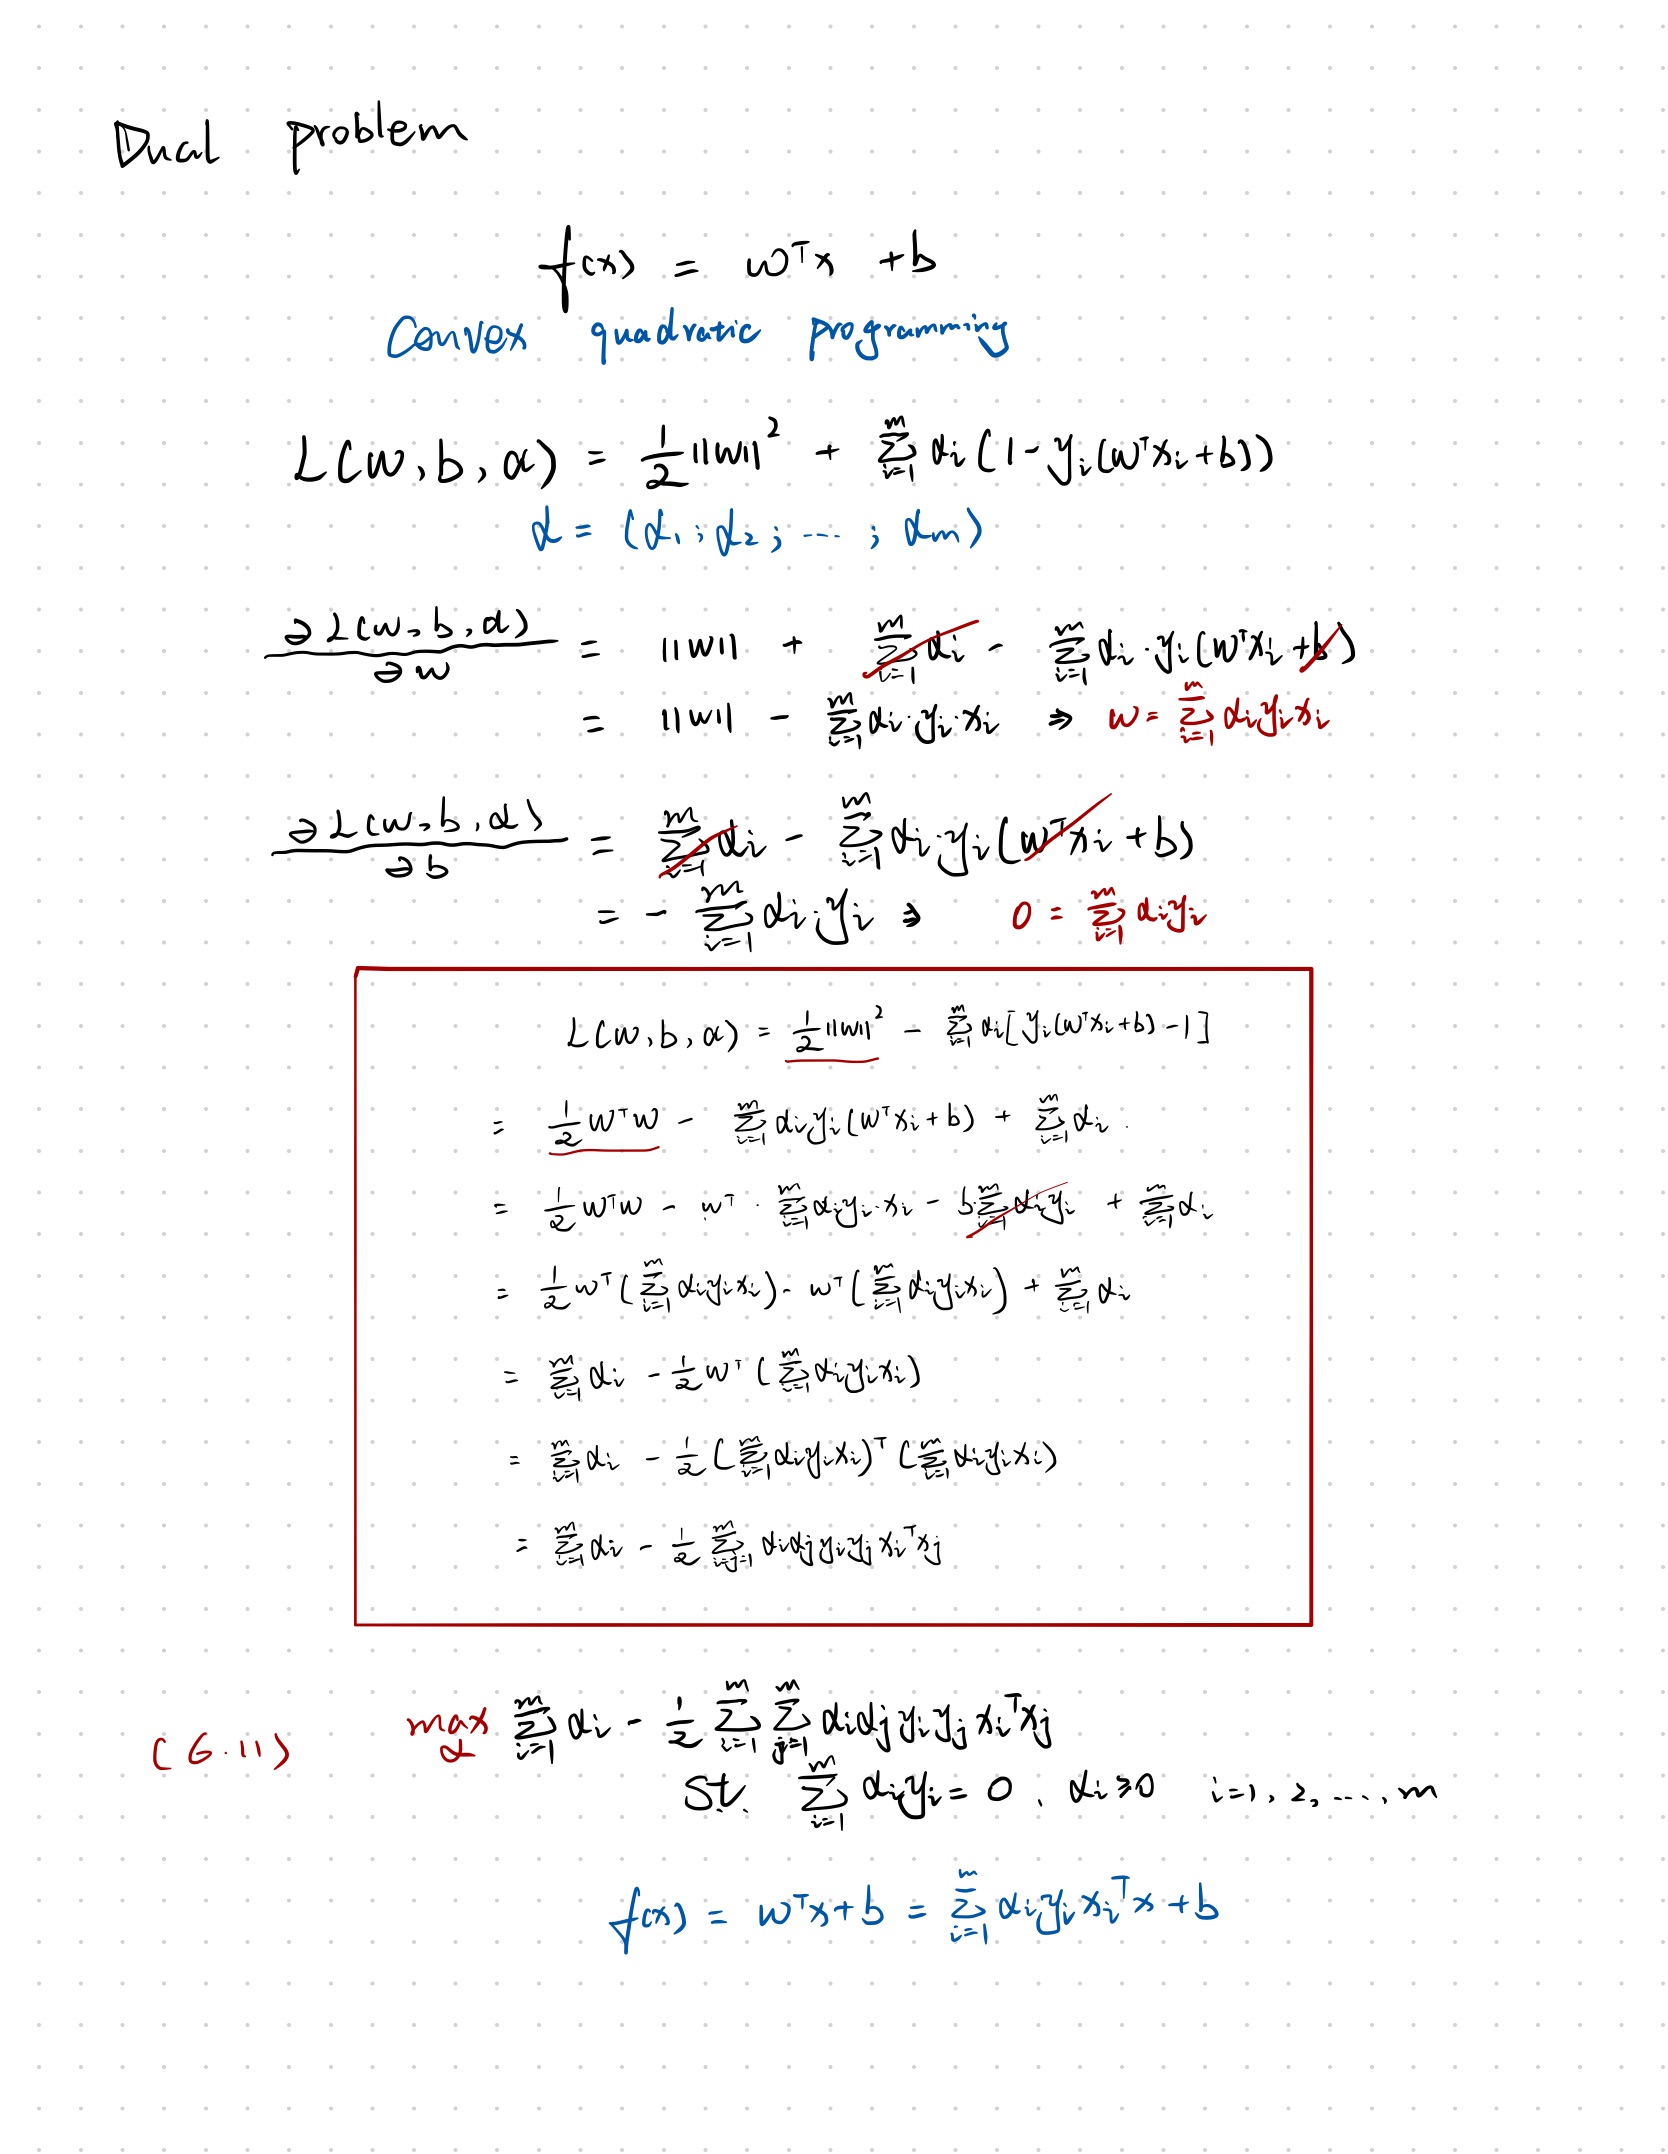 Dual problem
f(x) = wᵀx + b
Convex quadratic programming
L(w, b, α) = 1/2 ||w||² + Σ_{i=1}^{m} αᵢ(1 - yᵢ(wᵀxᵢ + b))
α = (α₁; α₂; ...; αₘ)
∂L(w, b, α)/∂w = ||w|| + Σ_{i=1}^{m} αᵢ - Σ_{i=1}^{m} αᵢ·yᵢ(wᵀxᵢ + b)
= ||w|| - Σ_{i=1}^{m} αᵢ·yᵢ·xᵢ ⇒ w = Σ_{i=1}^{m} αᵢyᵢxᵢ
∂L(w, b, α)/∂b = Σ_{i=1}^{m} αᵢ - Σ_{i=1}^{m} αᵢ·yᵢ(wᵀxᵢ + b)
= - Σ_{i=1}^{m} αᵢ·yᵢ ⇒ 0 = Σ_{i=1}^{m} αᵢyᵢ
L(w, b, α) = 1/2 ||w||² - Σ_{i=1}^{m} αᵢ[yᵢ(wᵀxᵢ + b) - 1]
= 1/2 wᵀw - Σ_{i=1}^{m} αᵢyᵢ(wᵀxᵢ + b) + Σ_{i=1}^{m} αᵢ.
= 1/2 wᵀw - wᵀ · Σ_{i=1}^{m} αᵢyᵢ·xᵢ - b·Σ_{i=1}^{m} αᵢyᵢ + Σ_{i=1}^{m} αᵢ
= 1/2 wᵀ(Σ_{i=1}^{m} αᵢyᵢxᵢ) - wᵀ(Σ_{i=1}^{m} αᵢyᵢxᵢ) + Σ_{i=1}^{m} αᵢ
= Σ_{i=1}^{m} αᵢ - 1/2 wᵀ(Σ_{i=1}^{m} αᵢyᵢxᵢ)
= Σ_{i=1}^{m} αᵢ - 1/2 (Σ_{i=1}^{m} αᵢyᵢxᵢ)ᵀ(Σ_{i=1}^{m} αᵢyᵢxᵢ)
= Σ_{i=1}^{m} αᵢ - 1/2 Σ_{i=j=1}^{m} αᵢαⱼyᵢyⱼxᵢᵀxⱼ
(6.11) max_α Σ_{i=1}^{m} αᵢ - 1/2 Σ_{i=1}^{m} Σ_{j=1}^{m} αᵢαⱼyᵢyⱼxᵢᵀxⱼ
s.t. Σ_{i=1}^{m} αᵢyᵢ = 0, αᵢ ≥ 0 i=1, 2, ..., m
f(x) = wᵀx + b = Σ_{i=1}^{m} αᵢyᵢxᵢᵀx + b